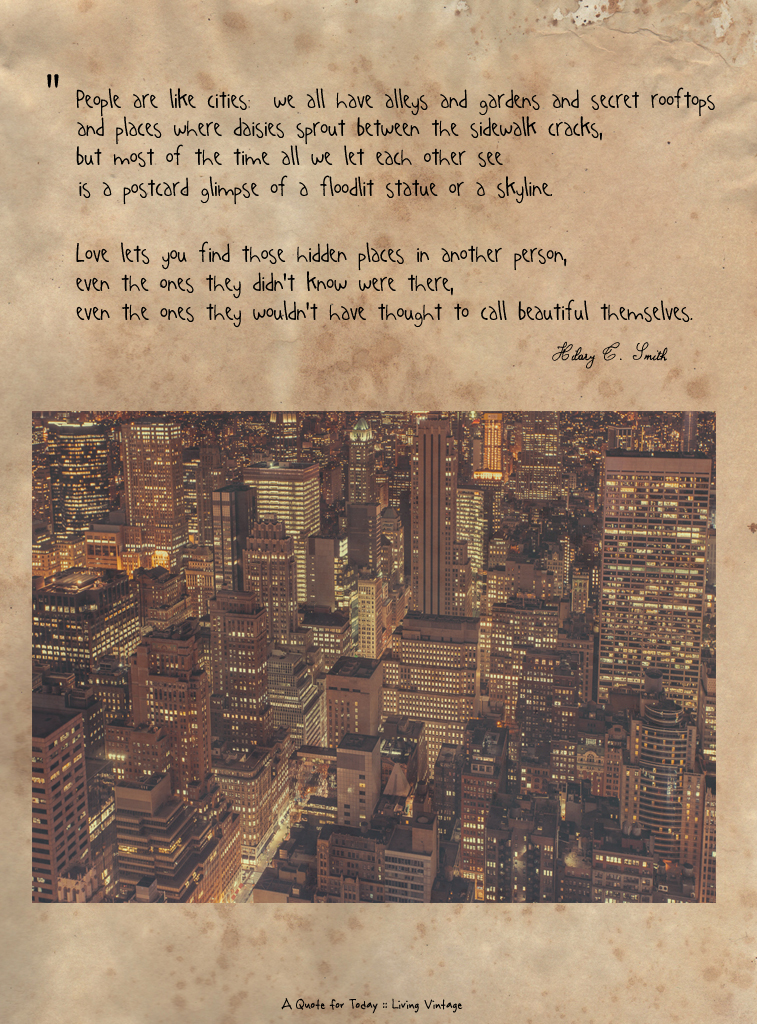 "
People are like cities: we all have alleys and gardens and secret rooftops
and places where daisies sprout between the sidewalk cracks,
but most of the time all we let each other see
is a postcard glimpse of a floodlit statue or a skyline.
Love lets you find those hidden places in another person,
even the ones they didn't know were there,
even the ones they wouldn't have thought to call beautiful themselves.
Hilary T. Smith
A Quote for Today :: Living Vintage